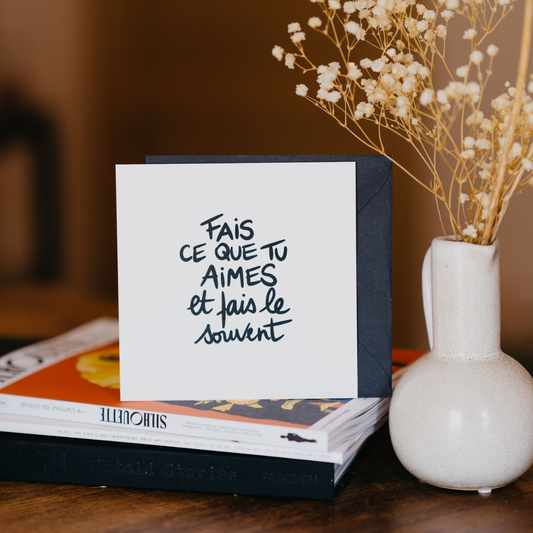 FAIS
CE QUE TU
AIMES
et fais le
souvent
SILHOUETTE
Untold Stories
TASCHEN